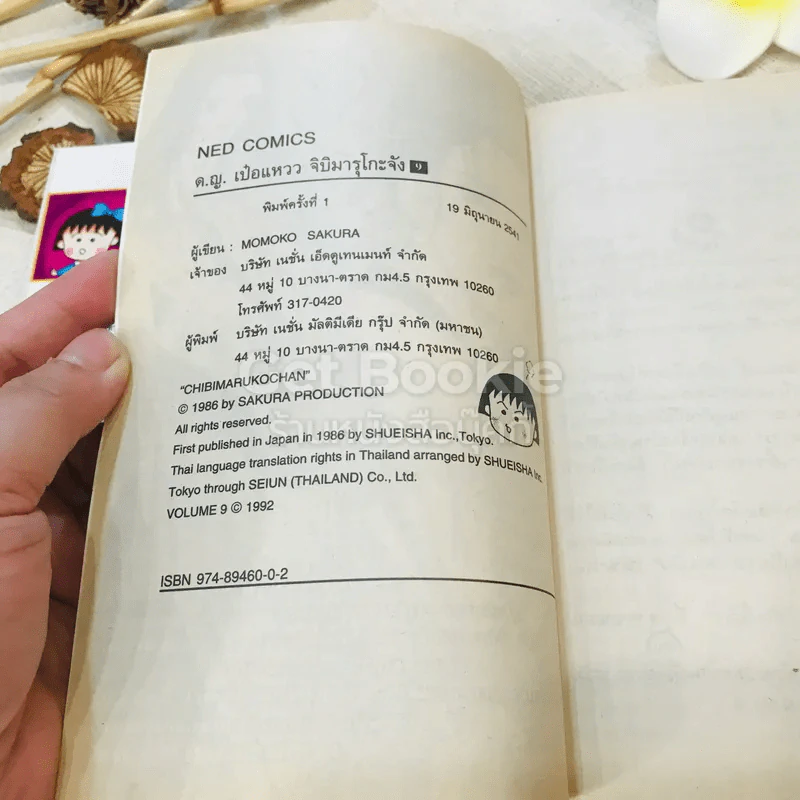 NED COMICS
ด.ญ. เป๋อแหวว จิบิมารุโกะจัง ๑
พิมพ์ครั้งที่ 1
19 มิถุนายน 2541
ผู้เขียน : MOMOKO SAKURA
เจ้าของ บริษัท เนชั่น เอ็ดดูเทนเมนท์ จำกัด
44 หมู่ 10 บางนา-ตราด กม4.5 กรุงเทพ 10260
โทรศัพท์ 317-0420
ผู้พิมพ์ บริษัท เนชั่น มัลติมีเดีย กรุ๊ป จำกัด (มหาชน)
44 หมู่ 10 บางนา-ตราด กม4.5 กรุงเทพ 10260
Get Bookie
"CHIBIMARUKOCHAN"
© 1986 by SAKURA PRODUCTION
All rights reserved.
First published in Japan in 1986 by SHUEISHA Inc.,Tokyo.
Thai language translation rights in Thailand arranged by SHUEISHA Inc.
Tokyo through SEIUN (THAILAND) Co., Ltd.
VOLUME 9 © 1992
ISBN 974-89460-0-2